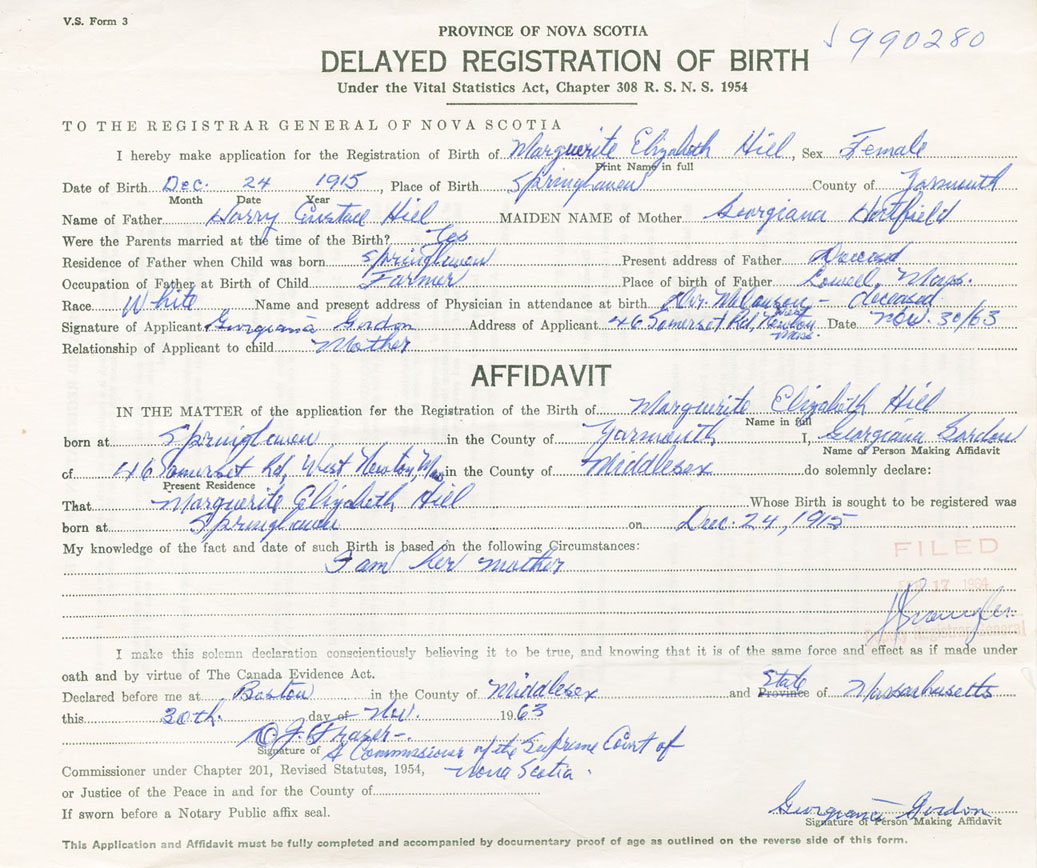 V.S. Form 3
PROVINCE OF NOVA SCOTIA
990280
DELAYED REGISTRATION OF BIRTH
Under the Vital Statistics Act, Chapter 308 R. S. N. S. 1954
TO THE REGISTRAR GENERAL OF NOVA SCOTIA
I hereby make application for the Registration of Birth of Marguerite Elizabeth Hill, Sex Female
Print Name in full
Date of Birth Dec. 24 1915, Place of Birth Springhaven County of Yarmouth
Month Date Year
Name of Father Harry Eustace Hill MAIDEN NAME of Mother Georgiana Hortfield
Were the Parents married at the time of the Birth? Yes
Residence of Father when Child was born Springhaven Present address of Father Deceased
Occupation of Father at Birth of Child Farmer Place of birth of Father Lowell, Mass.
Race White Name and present address of Physician in attendance at birth Dr. - deceased
Signature of Applicant Georgiana Gordon Address of Applicant 46 Somerset Rd, West Newton Mass. Date Nov. 30/63
Relationship of Applicant to child Mother
AFFIDAVIT
IN THE MATTER of the application for the Registration of the Birth of Marguerite Elizabeth Hill
Name in full
born at Springhaven in the County of Yarmouth I, Georgiana Gordon
Name of Person Making Affidavit
of 46 Somerset Rd, West Newton, Mass in the County of Middlesex do solemnly declare:
Present Residence
That Marguerite Elizabeth Hill Whose Birth is sought to be registered was
born at Springhaven on Dec. 24, 1915
My knowledge of the fact and date of such Birth is based on the following Circumstances:
I am her mother
FILED
17 1964
Deputy Registrar General
I make this solemn declaration conscientiously believing it to be true, and knowing that it is of the same force and effect as if made under
oath and by virtue of The Canada Evidence Act.
Declared before me at Boston in the County of Middlesex and Province State of Massachusetts
this 30th. day of Nov. 1963
O. J. Fraser
Signature of A Commissioner of the Supreme Court of
Commissioner under Chapter 201, Revised Statutes, 1954, Nova Scotia.
or Justice of the Peace in and for the County of
If sworn before a Notary Public affix seal.
Georgiana Gordon
Signature of Person Making Affidavit
This Application and Affidavit must be fully completed and accompanied by documentary proof of age as outlined on the reverse side of this form.